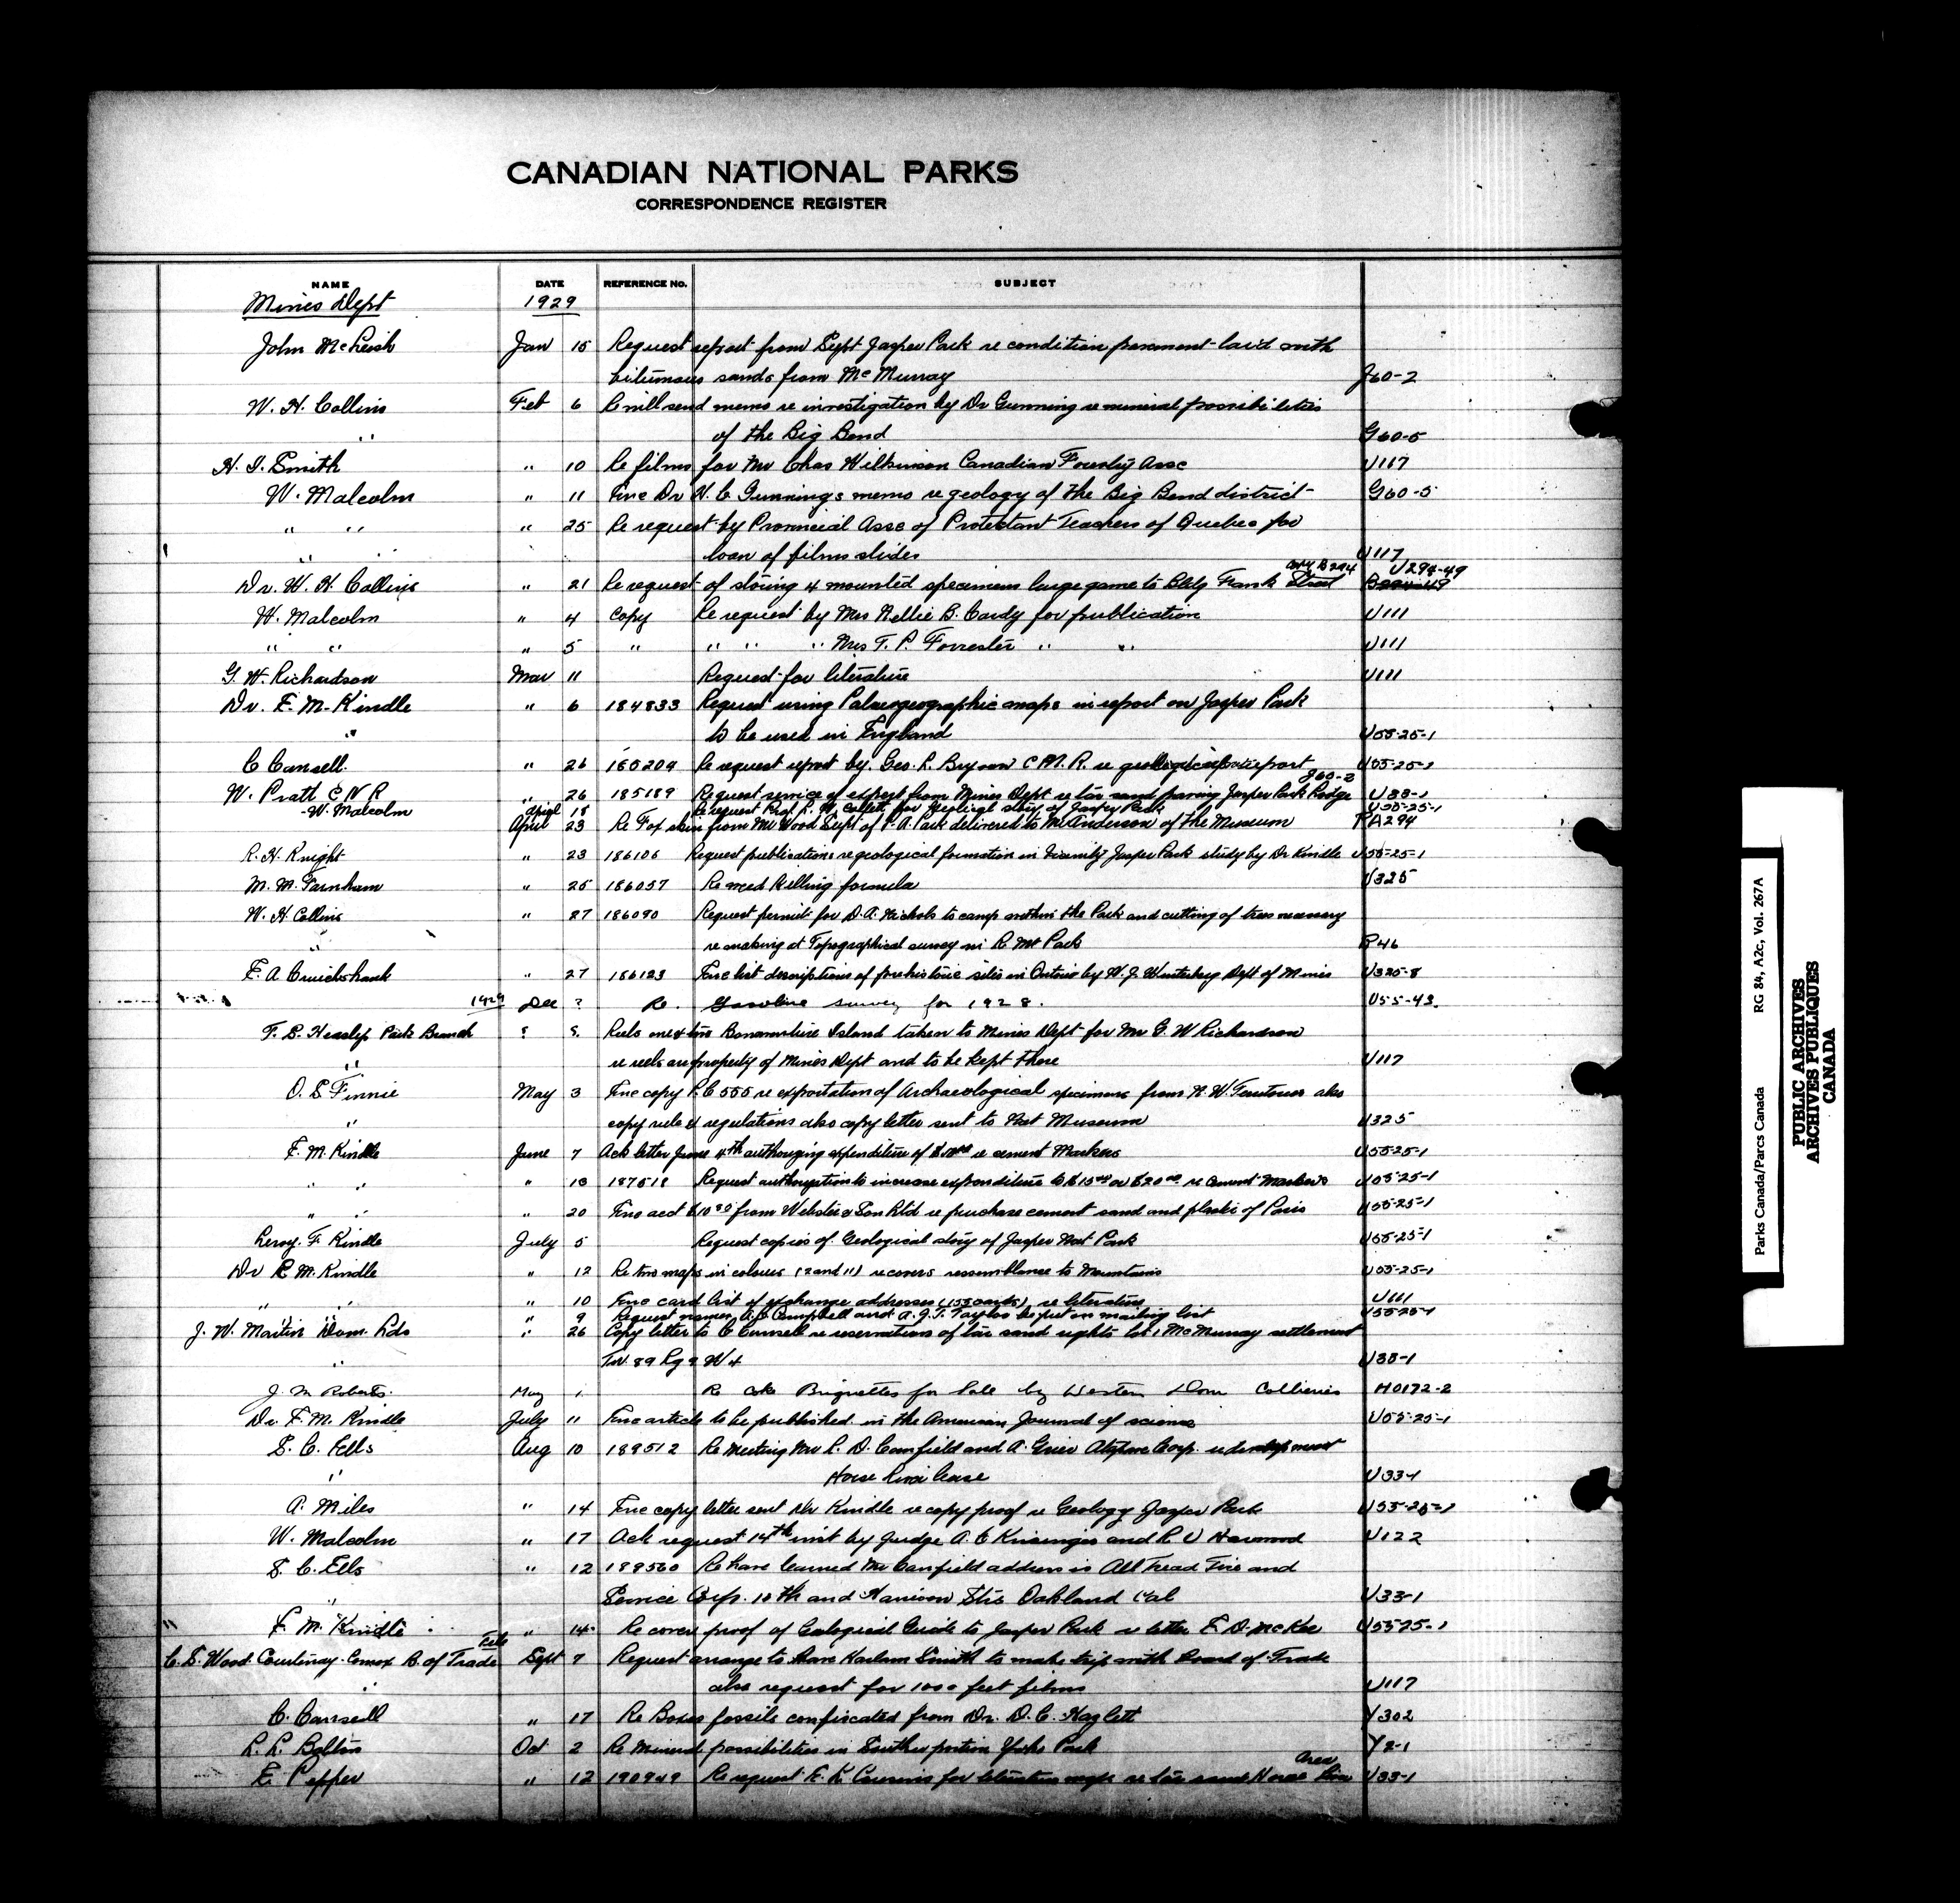 CANADIAN NATIONAL PARKS
CORRESPONDENCE REGISTER
NAME DATE REFERENCE No. SUBJECT
Mines Dept 1929
John McLeish Jan 15 Request report from Supt Jasper Park re condition pavement laid with
bitumous sands from McMurray J60-2
W. H. Collins Feb 6 C will send memo re investigation by Dr Gunning re mineral possibilities
" of the Big Bend G60-5
H. I. Smith " 10 Re films for Mr Chas Wilkinson Canadian Forestry Assc U117
W. Malcolm " 11 Enc Dr H. C Gunnings memo re geology of the Big Bend district G60-5
" " " 25 Re request by Provincial Assc of Protestant Teachers of Quebec for
" " loan of films slides U117
copy B294 U294-49
Dr. W. H Collins " 21 Re request of storing 4 mounted specimens large game to Bldg Frank Street
W. Malcolm " 4 Copy Re request by Mrs Nellie B. Cardy for publication U111
" " " 5 " " " " Mrs T. P. Forrester " " U111
G. W. Richardson Mar 11 Request for literature U111
Dr. E. M. Kindle " 6 184833 Request using Palaeogeographic maps in report on Jasper Park
" to be used in England U55-25-1
C Camsell. " 26 185209 Re request report by. Geo. L. Bryson C.N.R. re report U55-25-1
J60-2
W. Pratt C N R " 26 185189 Request service of expert from Mines Dept re tar sand paving Jasper Park Lodge U33-1
W. Malcolm April 18 Re request Prof. L. W. Collett for Geological story of Jasper Park U55-25-1
April 23 Re Fox skin from Mr Wood Supt of P. A. Park delivered to Mr Anderson of the Museum PA294
R. H. Knight " 23 186106 Request publications re geological formation in vicinity Jasper Park study by Dr Kindle U55-25-1
M. M. Farnham " 25 186057 Re weed killing formula U325
W. H. Collins " 27 186090 Request permit for D. A. Nichols to camp within the Park and cutting of trees necessary
" re making at Topographical survey in R. Mt Park R46
E. A. Cruickshank " 27 186123 Enc list descriptions of prehistoric sites in Ontario by W. J. Wintemberg Dept of Mines U325-8
1929 Dec ? Re. Gasoline survey for 1928. U55-43.
F. S. Heaslip Park Branch ? ? Reels one & two Bonaventure Island taken to Mines Dept for Mr G. W Richardson
" re reels are property of Mines Dept and to be kept there U117
O. S. Finnie May 3 Enc copy P. C 555 re exportation of Archaeological specimens from N. W. Territories also
" copy rules & regulations also copy letter sent to Nat Museum U325
E. M. Kindle June 7 Ack letter June 4th authorizing expenditure of re cement Markers U55-25-1
" " " 18 187518 Request authorization to increase expenditure to $15.00 or $20.00 re Cement Markers U55-25-1
" " " 20 Enc acct from Webster & Son Ltd re purchase cement sand and plaster of Paris U55-25-1
Leroy. F Kindle July 5 Request copies of Geological story of Jasper Nat Park U55-25-1
Dr E M. Kindle " 12 Re two maps in colours (2 and 11) re covers ressemblance to Mountains U55-25-1
" " " 10 Enc card list of exchange addresses (155 cards) re literature U111
" " " 9 Request names A. Campbell and A. J. T. Taylor be put on mailing list U55-25-1
J. W. Martin Dom. Lds " 26 Copy letter to C Camsell re reservations of tar sand rights lot 1 McMurray settlement
" Tw. 89 Rg 9 W4 U33-1
J. M Roberts. May 1. Re Coke Briquettes for Sale by Western Dom Collieries H0172-2
Dr. E. M. Kindle July 11 Enc article to be published in the American Journal of science U55-25-1
S. C. Ells Aug 10 189512 Re Meeting Mr L. D. Canfield and A. Grier Corp. re development
" Horse River lease U33-1
A. Miles " 14 Enc copy letter sent Dr Kindle re copy proof re Geology Jasper Park U55-25-1
W. Malcolm " 17 Ack request 14th visit by Judge A. C and R V Harwood U122
S. C. Ells " 12 189560 Re have learned Mr Canfield address is All Tread Tire and
" Service Corp. 12th and Harrison Sts Oakland Cal U33-1
" E. M. Kindle " 14 Re cover proof of Geological Guide to Jasper Park re letter E. D. McKee U55-25-1
C. S. Wood Courtenay-Comox B. of Trade Sept 7 Request arrange to have Harlan Smith to make trip with Board of Trade
" also request for 1000 feet films U117
C. Camsell " 17 Re Boxes fossils confiscated from Dr. D. C. Hazlett Y302
L. L. Bolton Oct 2 Re Minerals possibilities in Southern portion Yoho Park Y2-1
E. Pepper " 12 190949 Re request E. K for literature maps re tar sand Horse River Area U33-1
RG 84, A2c, Vol. 267A
Parks Canada/Parcs Canada
PUBLIC ARCHIVES
ARCHIVES PUBLIQUES
CANADA